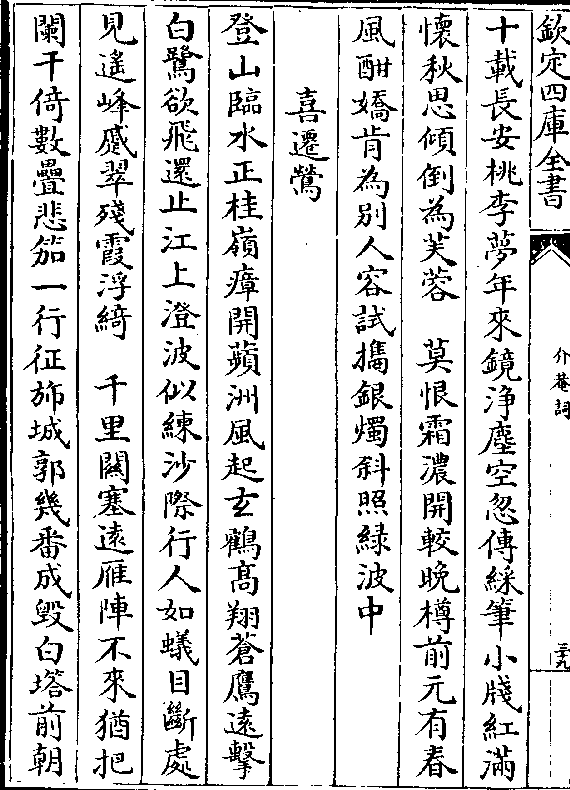 欽定四庫全書
介菴詞
三十九
十載長安桃李夢年來鏡浄塵空忽傳綵筆小牋紅滿
懷秋思傾倒為芙蓉　莫恨霜濃開較晚樽前元有春
風酣嬌肯為別人容試攜銀燭斜照緑波中
喜遷鶯
登山臨水正桂嶺瘴開蘋洲風起玄鶴髙翔蒼鷹逺擊
白鷺欲飛還止江上澄波似練沙際行人如蟻目斷處
見遙峰蹙翠殘霞浮綺　千里闗塞逺雁陣不來猶把
闌干倚數疊悲笳一行征斾城郭幾番成毁白塔前朝